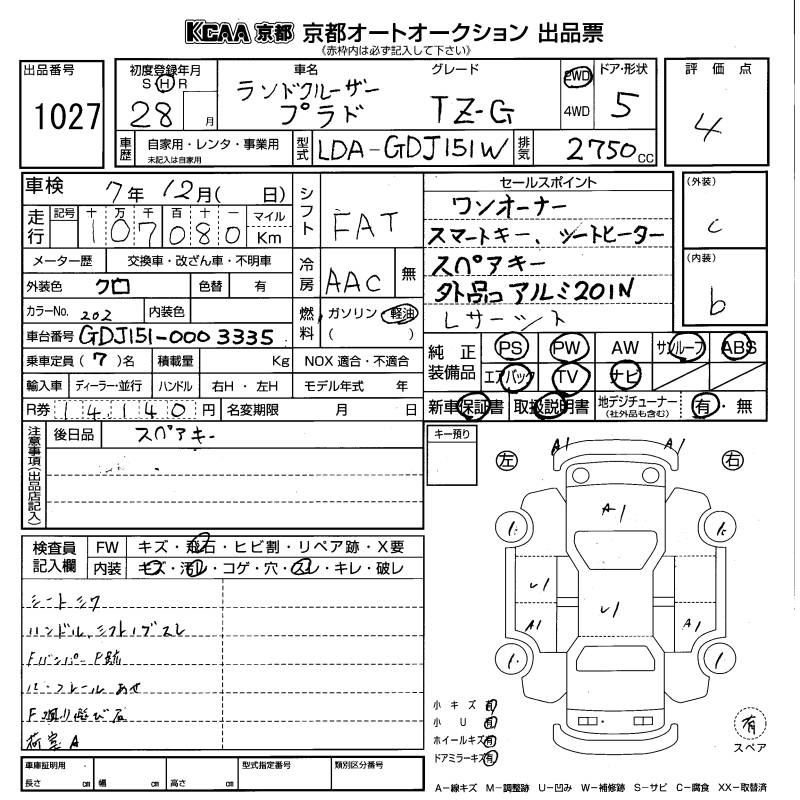 KCAA 京都 京都オートオークション 出品票
《赤枠内は必ず記入して下さい》
出品番号
1027
初度登録年月
S H R
28 月
車名
ランドクルーザー
プラド
グレード
TZ-G
2WD
4WD
ドア・形状
5
評価点
4
車歴
自家用・レンタ・事業用
未記入は自家用
型式
LDA-GDJ151W
排気
2750 cc
車検 7年 12月( 日)
走行
記号 十 万 千 百 十 一 マイル
107080 Km
メーター歴 交換車・改ざん車・不明車
外装色 クロ 色替 有
カラーNo. 202 内装色
車台番号 GDJ151-0003335
乗車定員 (7)名 積載量 Kg
輸入車 ディーラー・並行 ハンドル 右H・左H
R券 14,140円 名変期限 月 日
シフト FAT
冷房 AAC 無
燃料 ガソリン 軽油
( )
NOX 適合・不適合
モデル年式 年
セールスポイント
ワンオーナー
スマートキー、シートヒーター
スペアキー
外品アルミ20IN
Lサーット
(外装)
c
(内装)
b
純正装備品
PS PW AW サンルーフ ABS
エアバック TV ナビ
新車保証書 取扱説明書 地デジチューナー 有・無
(社外品も含む)
注意事項(出品店記入)
後日品 スペアキー
キー預り
検査員記入欄
FW キズ・飛石・ヒビ割・リペア跡・X要
内装 キズ・汚レ・コゲ・穴・スレ・キレ・破レ
シートシワ
ハンドル、シフトノブスレ
Fバンパー
F廻り飛び石
荷室A
左 右
A1 A1
A1
U1 U1
A1 A1
小キズ 有
小U 有
ホイールキズ 有
ドアミラーキズ 有
有
スペア
車庫証明用
長さ cm 幅 cm 高さ cm
型式指定番号
類別区分番号
A-線キズ M-調整跡 U-凹み W-補修跡 S-サビ C-腐食 XX-取替済